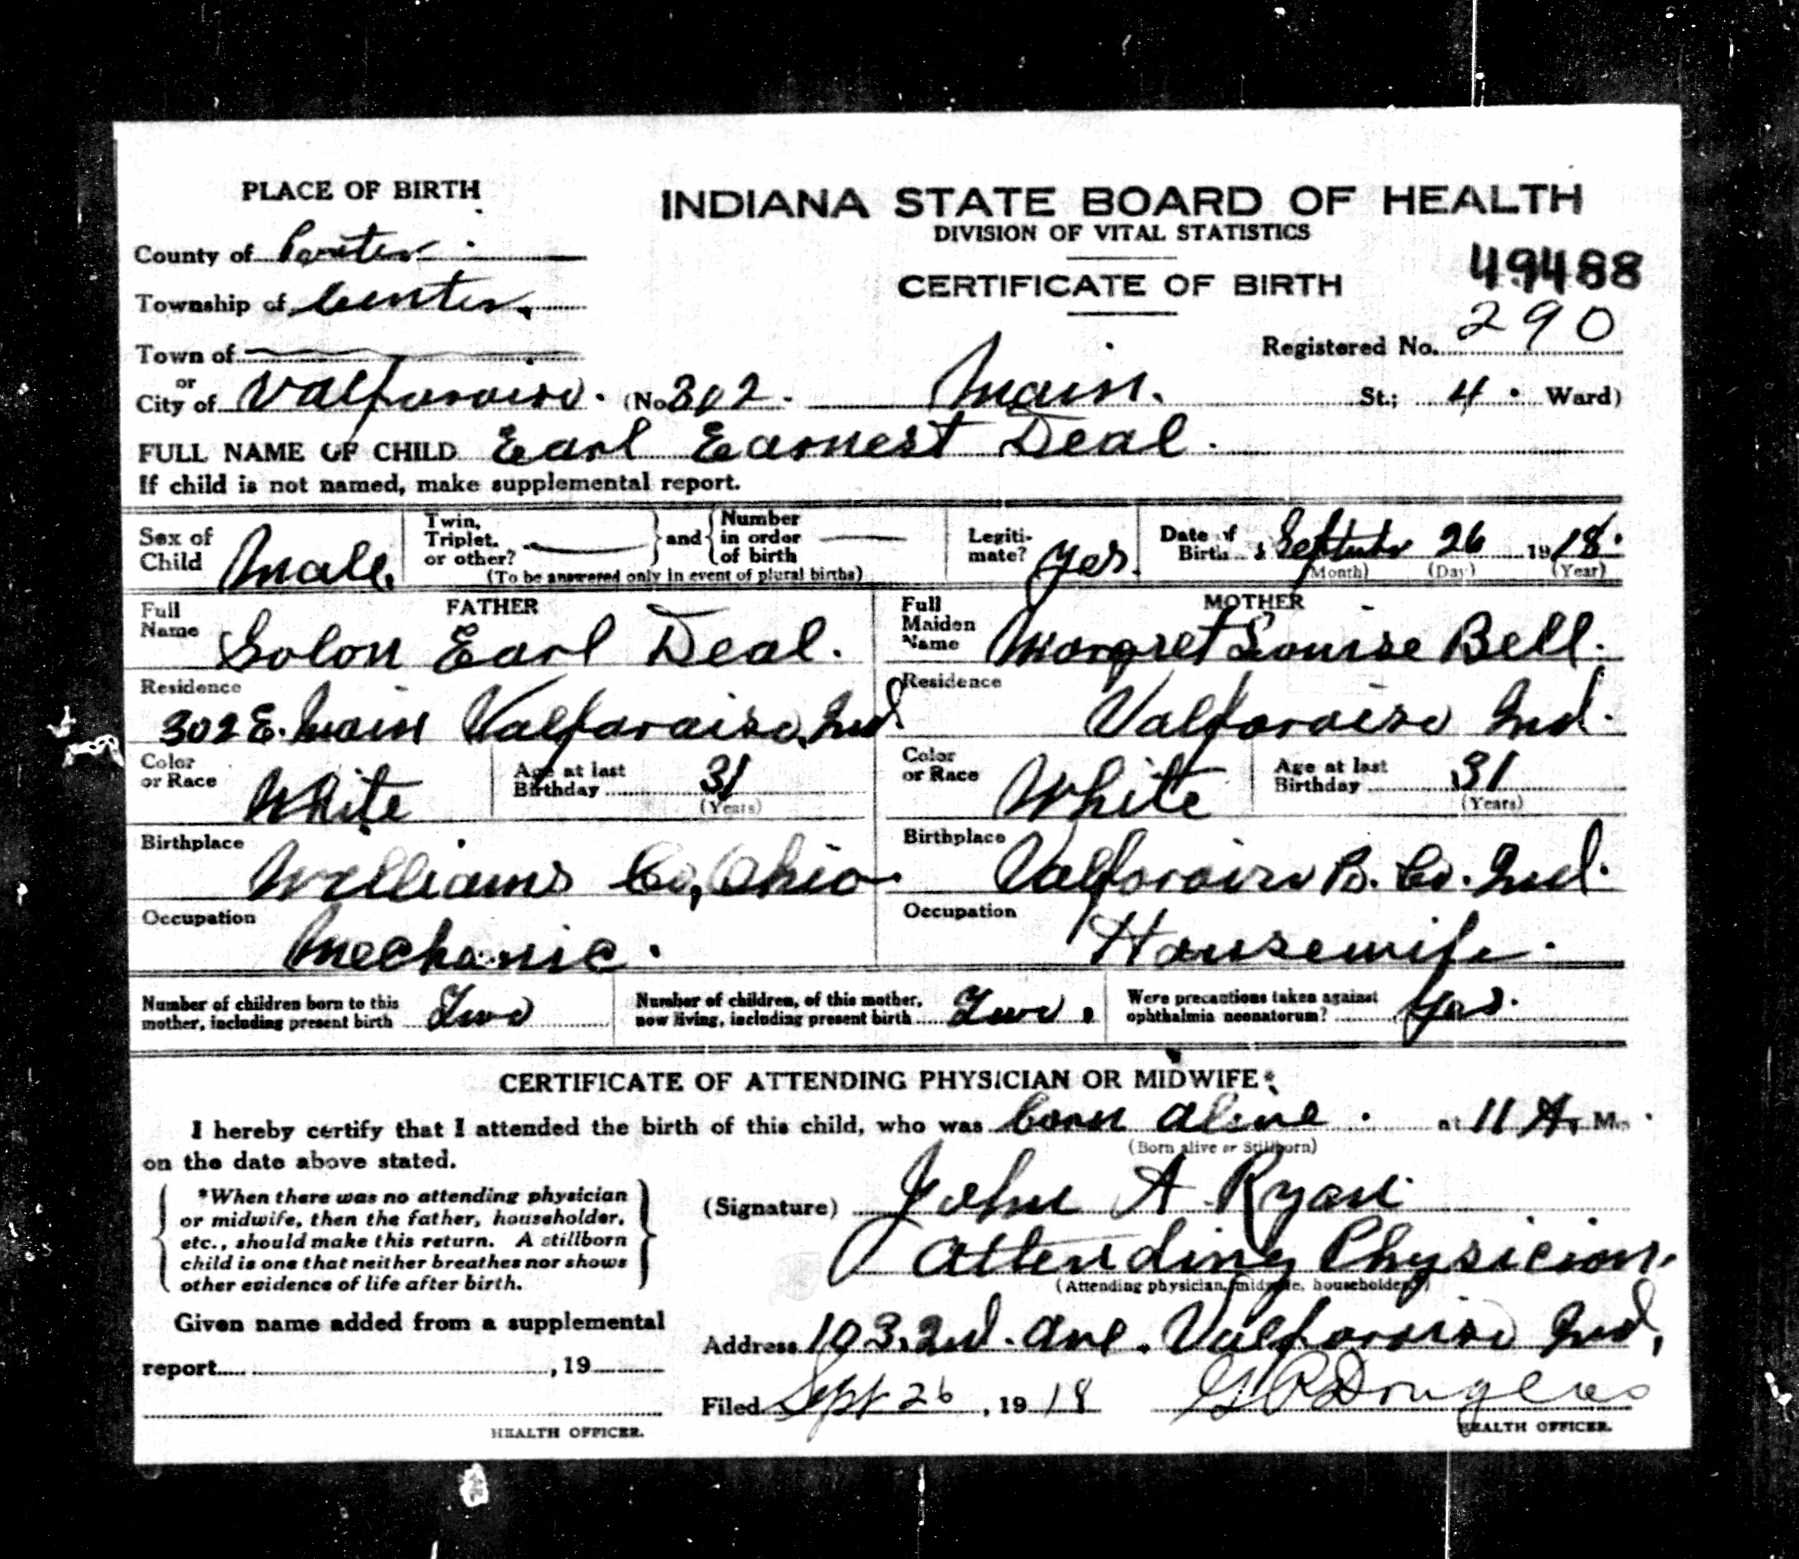 PLACE OF BIRTH
INDIANA STATE BOARD OF HEALTH
DIVISION OF VITAL STATISTICS
County of Porter
49488
CERTIFICATE OF BIRTH
Township of Center.
Registered No. 290
Town of
or
City of Valparaiso. (No 302. Main. St.; 4. Ward)
FULL NAME OF CHILD Earl Earnest Deal.
If child is not named, make supplemental report.
Sex of Child Male. Twin, Triplet, or other? and Number in order of birth Legitimate? Yes. Date of Birth September 26 1918.
(To be answered only in event of plural births) (Month) (Day) (Year)
FATHER MOTHER
Full Name Solon Earl Deal. Full Maiden Name Margret Louise Bell.
Residence 302 E. Main Valparaiso, Ind. Residence Valparaiso Ind.
Color or Race White Age at last Birthday 31 (Years) Color or Race White Age at last Birthday 31 (Years)
Birthplace Williams Co, Ohio. Birthplace Valparaiso P. Co. Ind.
Occupation Mechanic. Occupation Housewife.
Number of children born to this mother, including present birth Two Number of children, of this mother, now living, including present birth Two. Were precautions taken against ophthalmia neonatorum? Yes.
CERTIFICATE OF ATTENDING PHYSICIAN OR MIDWIFE*
I hereby certify that I attended the birth of this child, who was born alive. at 11 A. M.
(Born alive or Stillborn)
on the date above stated.
*When there was no attending physician
or midwife, then the father, householder,
etc., should make this return. A stillborn
child is one that neither breathes nor shows
other evidence of life after birth.
(Signature) John A Ryan
Attending Physician.
(Attending physician, midwife, householder)
Given name added from a supplemental
report , 19
Address 103. 2nd. ave. Valparaiso Ind,
Filed Sept 26, 1918 Douglas
HEALTH OFFICER. HEALTH OFFICER.